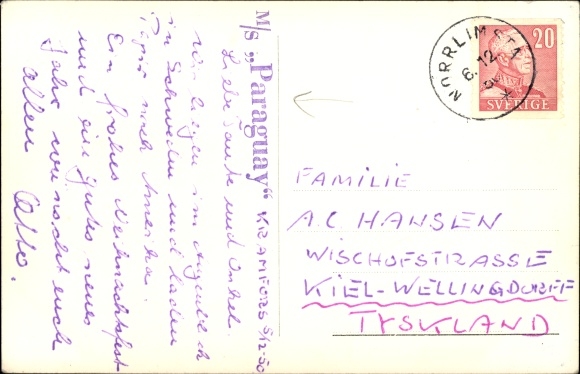 M/s „Paraguay“ KRAMFORS 5/12-50
Liebe Tante und Onkel.
wir liegen im Augenblick
in Schweden und laden
Papier nach Amerika.
Ein frohes Weihnachtsfest
und ein gutes neues
Jahr wünscht euch
allen Otto.
NORRLIMSTA
6.12
20
SVERIGE
FAMILIE
A.C. HANSEN
WISCHOFSTRASSE
KIEL-WELLINGDORFF
TYSKLAND